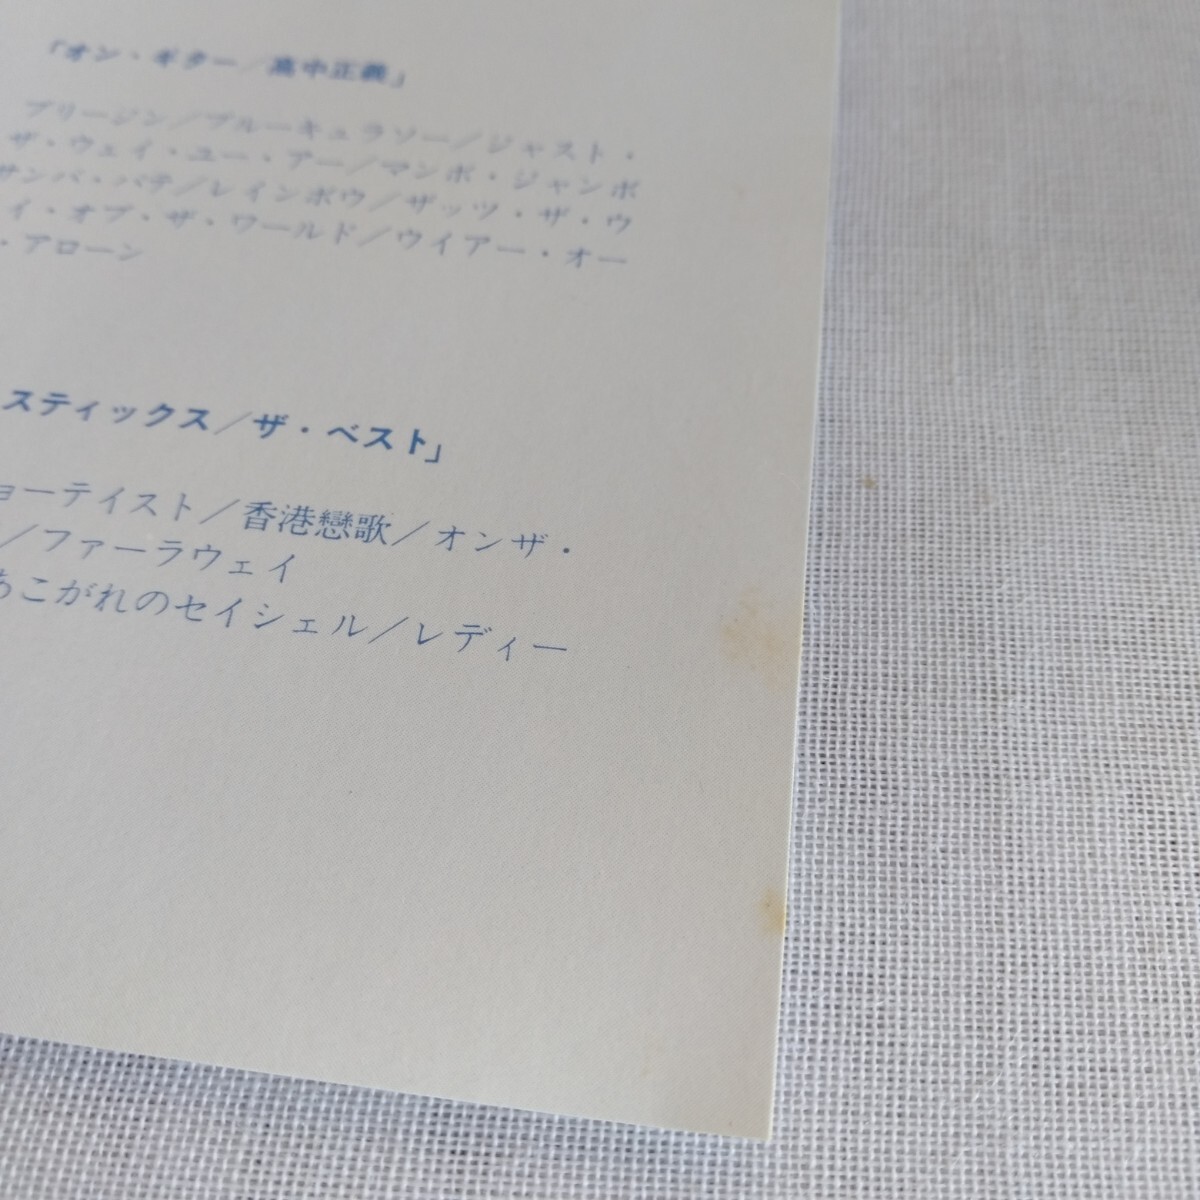 「オン・ギター／高中正義」
ブリージン／ブルーキュラソー／ジャスト・
ザ・ウェイ・ユー・アー／マンボ・ジャンボ
サンバ・パテ／レインボウ／ザッツ・ザ・ウ
イ・オブ・ザ・ワールド／ウイアー・オー
・アローン
スティックス／ザ・ベスト」
ョーテイスト／香港戀歌／オンザ・
／ファーラウェイ
あこがれのセイシェル／レディー